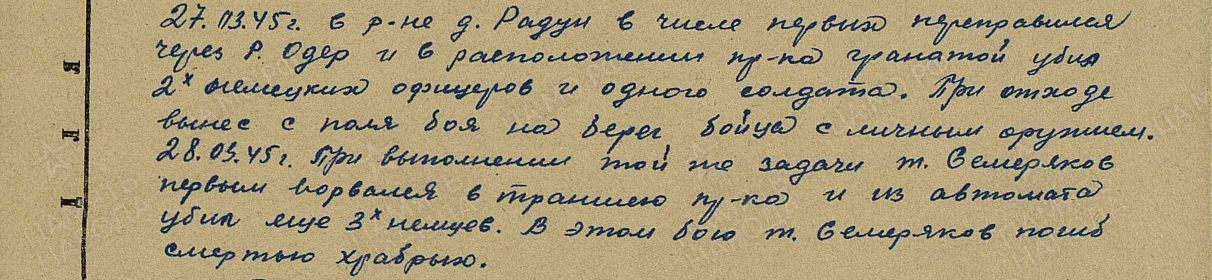 27.03.45г. в р-не д. Радун в числе первых переправился
через р. Одер и в расположении пр-ка гранатой убил
2х немецких офицеров и одного солдата. При отходе
вынес с поля боя на берег бойца с личным оружием.
28.03.45г. При выполнении той же задачи т. Семеряков
первым ворвался в траншею пр-ка и из автомата
убил еще 3х немцев. В этом бою т. Семеряков погиб
смертью храбрых.